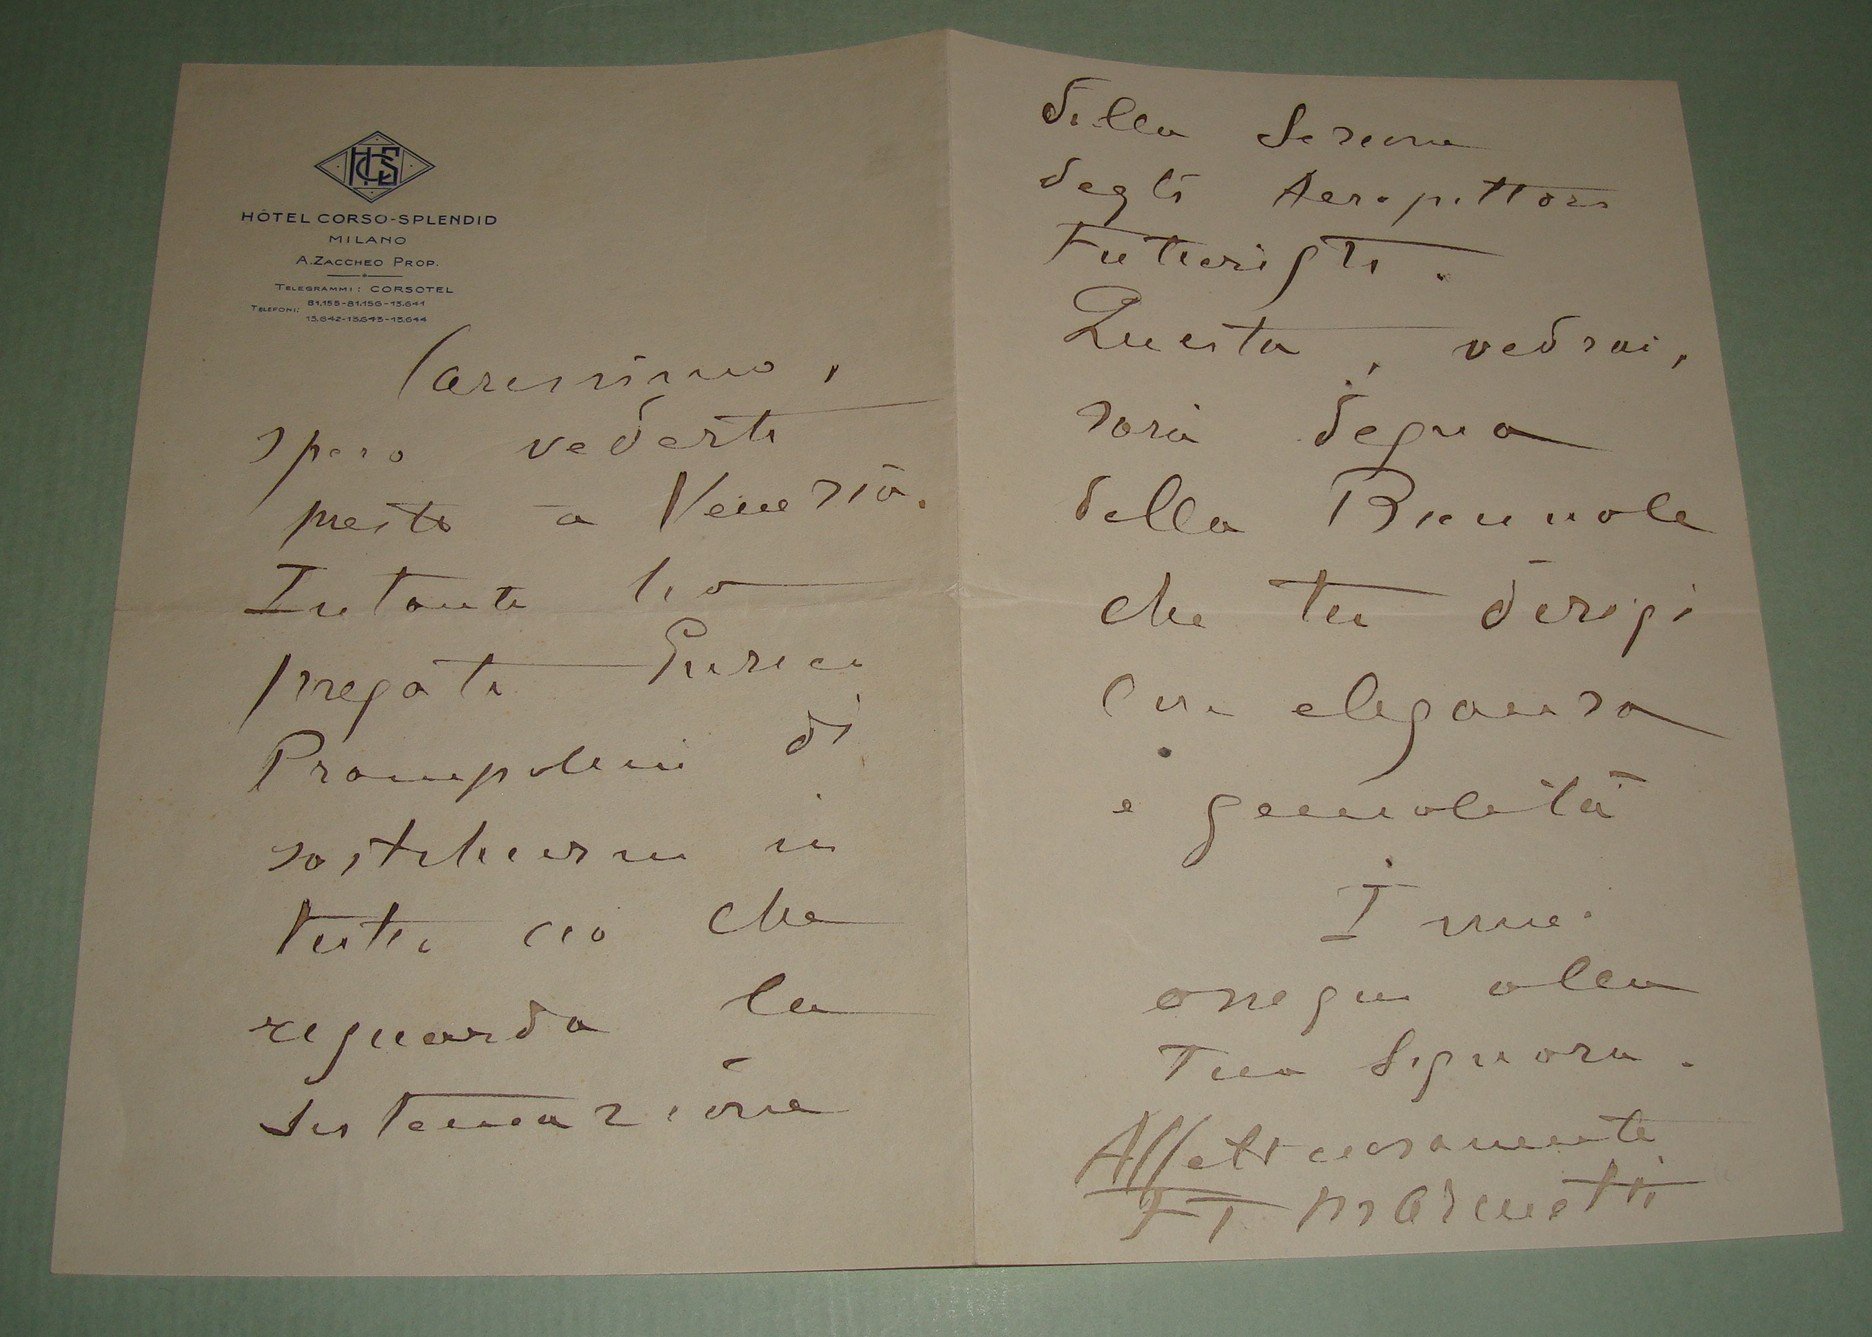 HCS
HÔTEL CORSO-SPLENDID
MILANO
A. ZACCHEO PROP.
TELEGRAMMI: CORSOTEL
TELEFONI: 81.155-81.156-13.641
13.642-13.643-13.644
Carissimo,
spero vederti
presto a Venezia.
Intanto ho
pregato
Prampolini di
sostituirmi in
tutto ciò che
riguarda la
sistemazione
della Sezione
degli Aeropittori
Futuristi.
Questa, vedrai,
sarà degna
della Biennale
che tu dirigi
con eleganza
e genialità
I miei
ossequi alla
Tua Signora.
Affettuosamente
FT Marinetti